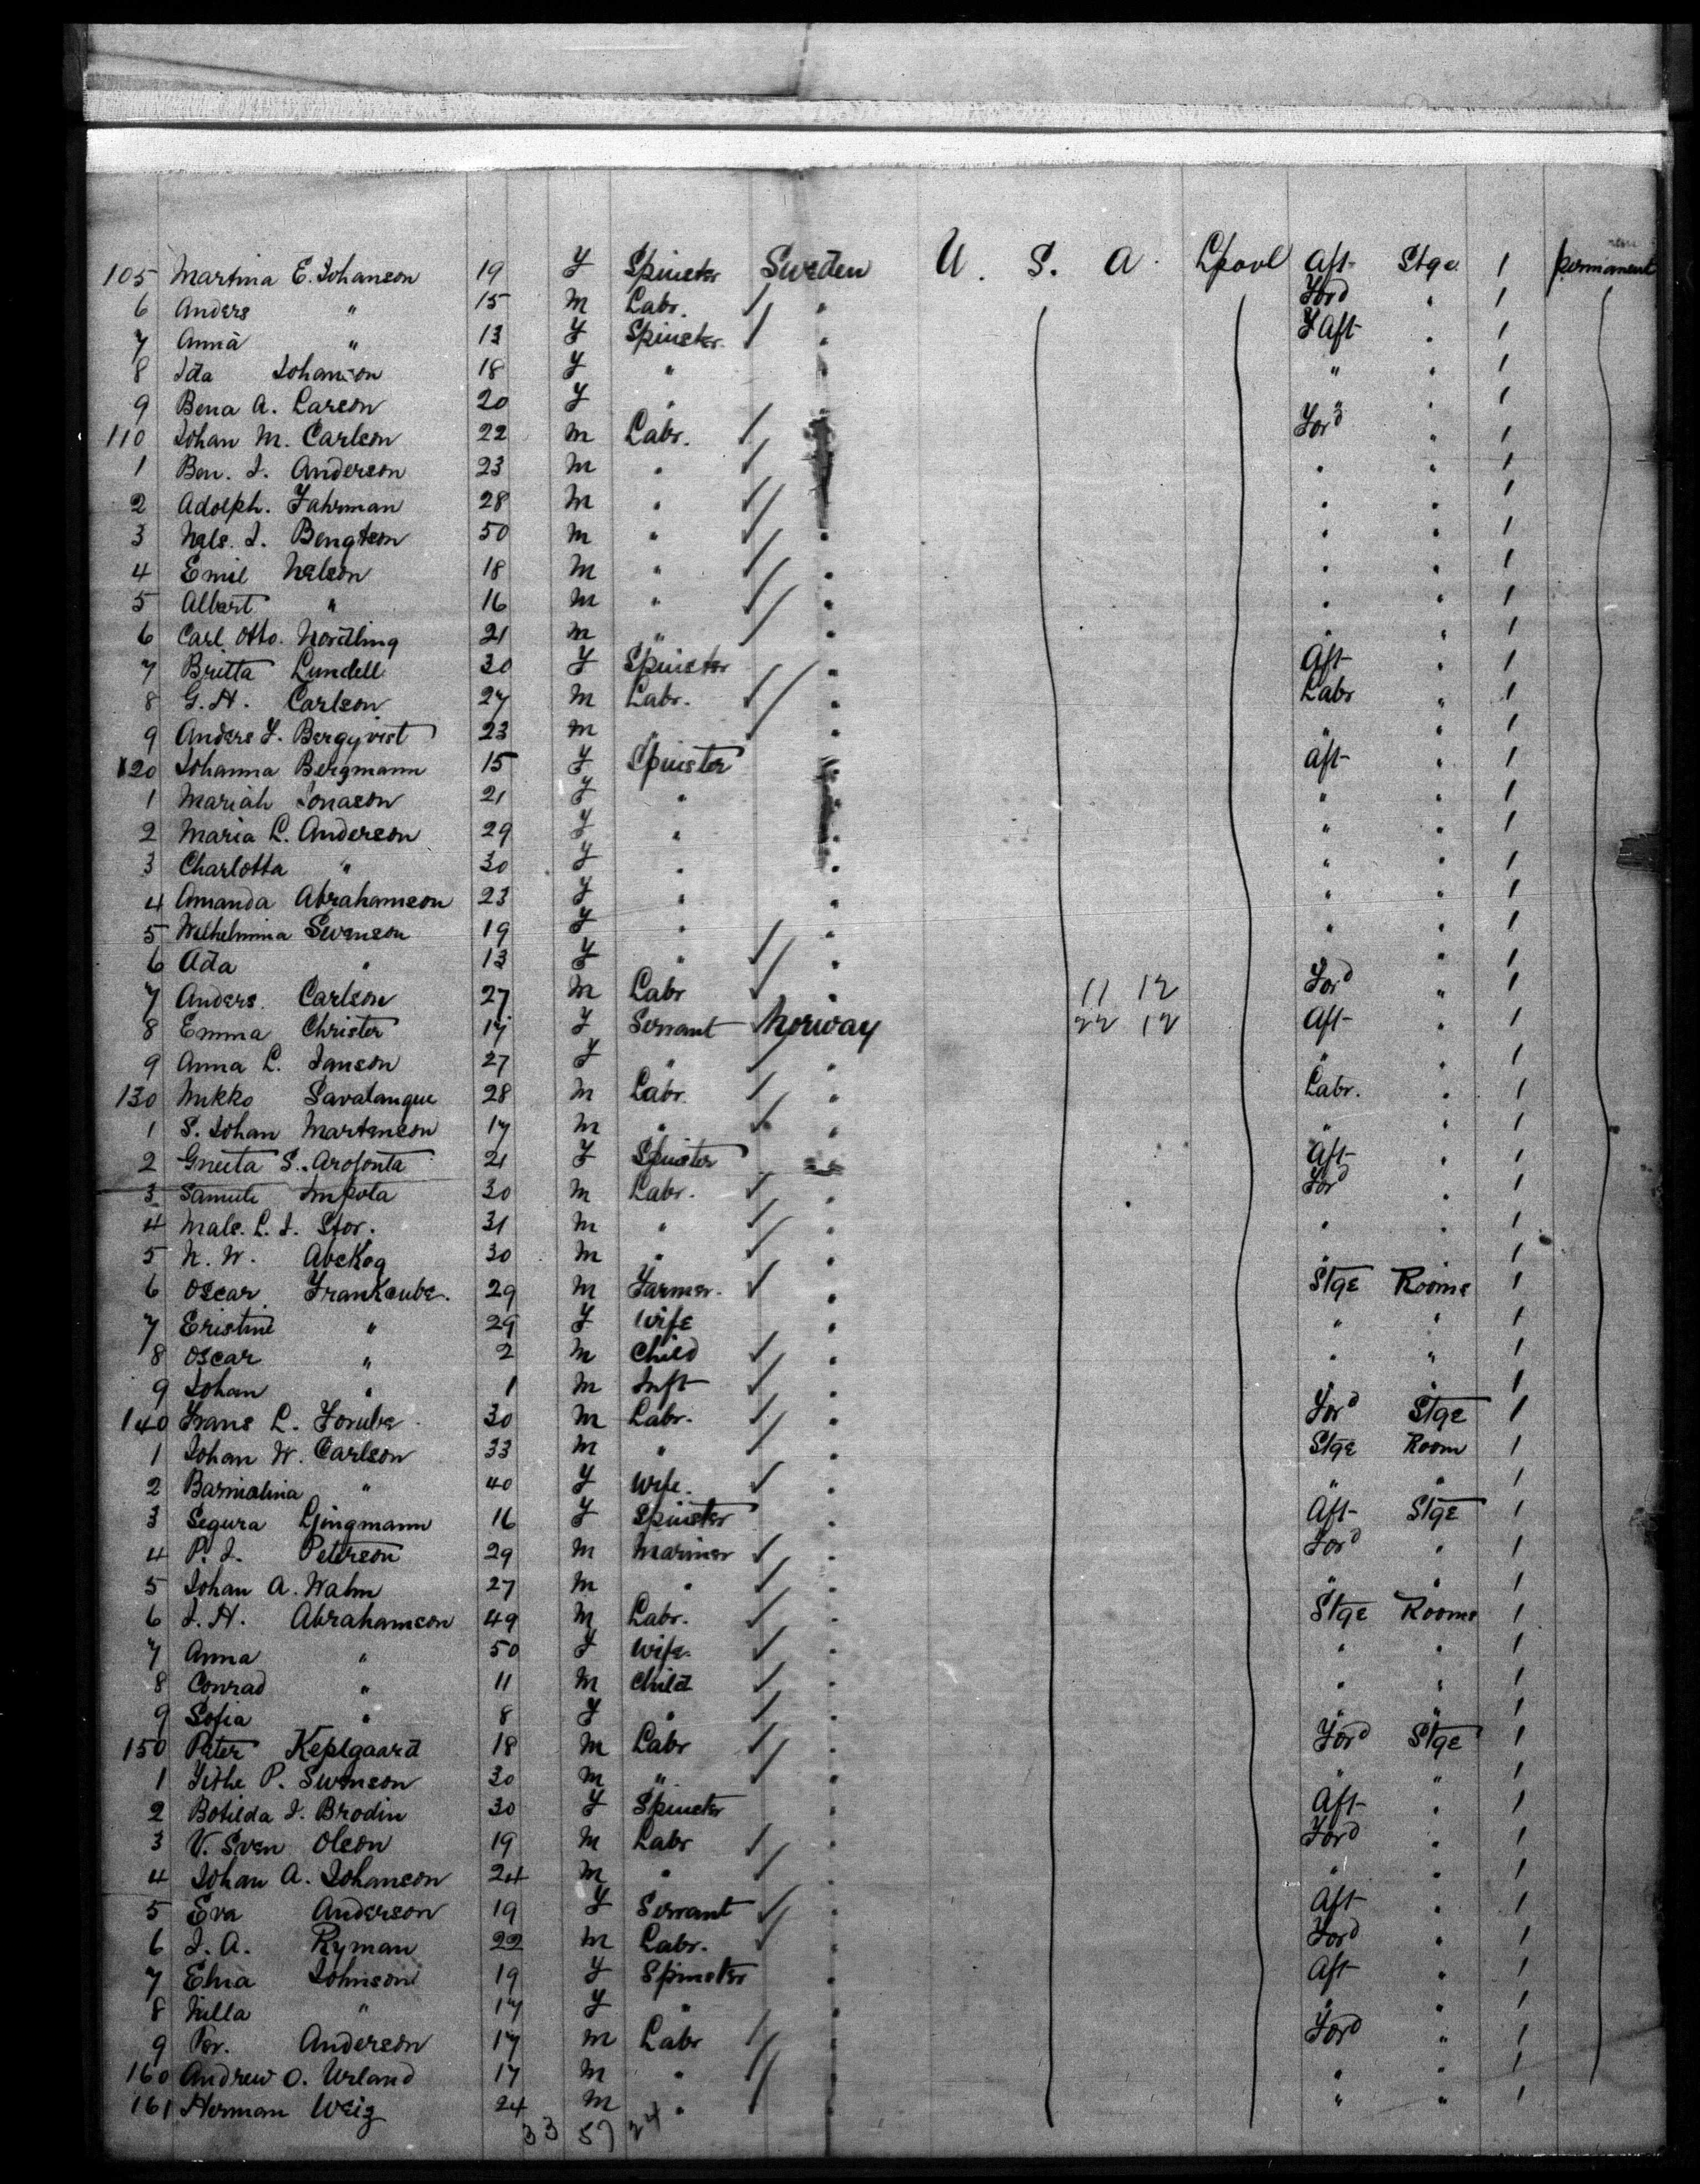 105 Martina E. Johanson 19 F Spinster Sweden U. S. A. Lpool Aft Stge 1 permanent
6 Anders " 15 M Labr. " Ford " 1
7 Anna " 13 F Spinster " Aft " 1
8 Ida Johanson 18 F " " " 1
9 Bena A. Larson 20 F " " " 1
110 Johan M. Carlson 22 M Labr. Ford " 1
1 Ben. J. Anderson 23 M " " " 1
2 Adolph. Fahrman 28 M " " " 1
3 Nels. J. Bengtson 50 M " " " " 1
4 Emil Nelson 18 M " " " " 1
5 Albert " 16 M " " " " 1
6 Carl Otto. Nordling 21 M " " " " 1
7 Britta Lundell 30 F Spinster " Aft " 1
8 G. H. Carlson 27 M Labr. " Labr " 1
9 Anders F. Bergqvist 23 M " " " " 1
120 Johanna Bergmann 15 F Spinster " Aft " 1
1 Mariah Jonason 21 F " " " " 1
2 Maria L. Anderson 29 F " " " " 1
3 Charlotta " 30 F " " " " 1
4 Amanda Abrahamson 23 F " " " " 1
5 Wilhelmina Swenson 19 F " " " " 1
6 Ada " 13 F " " " 1
7 Anders Carlson 27 M Labr " 11 12 Ford " 1
8 Emma Christer 17 F Servant Norway 22 12 Aft " 1
9 Anna L. Janson 27 F " " " " 1
130 Mikko 28 M Labr. " Labr. " 1
1 S. Johan Martenson 17 M " " " " 1
2 S. 21 F Spinster " Aft " 1
3 30 M Labr. " Ford " 1
4 L. J. Stor. 31 M " " " " 1
5 N. W. Abskog 30 M " " " " 1
6 Oscar 29 M Farmer. " Stge Rooms 1
7 Eristine " 29 F Wife " " " 1
8 Oscar " 2 M Child " " " 1
9 Johan " 1 M Inft " " " 1
140 Frans L. 30 M Labr. " Ford Stge 1
1 Johan W. Carlson 33 M " " Stge Room 1
2 " 40 F Wife. " " " 1
3 Segura Ljingmann 16 F Spinster " Aft Stge 1
4 P. J. Peterson 29 M Mariner " Ford " 1
5 Johan A. Walm 27 M " " " " 1
6 J. H. Abrahamson 49 M Labr. " Stge Rooms 1
7 Anna " 50 F Wife. " " " 1
8 Conrad " 11 M Child " " " 1
9 Sofia " 8 F " " " " 1
150 Peter Keplgaard 18 M Labr " Ford Stge 1
1 P. Swenson 30 M " " " " 1
2 Botilda J. Brodin 30 F Spinster " Aft " 1
3 V. Sven Olson 19 M Labr " Ford " 1
4 Johan A. Johanson 24 M " " " " 1
5 Eva Anderson 19 F Servant " Aft " 1
6 J. A. Ryman 22 M Labr. " Ford " 1
7 Elna Johnson 19 F Spinster " Aft " 1
8 Nilla " 17 F " " " " 1
9 Per. Anderson 17 M Labr " Ford " 1
160 Andrew O. Urland 17 M " " " " 1
161 Herman Weiz 24 M " " " " 1
33 57 24